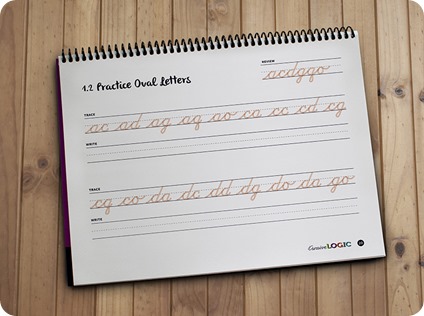 REVIEW
acdgqo
1.2 Practice Oval Letters
TRACE
ac ad ag aq ao ca cc cd cg
WRITE
TRACE
cq co da dc dd dg do da go
WRITE
CursiveLOGIC